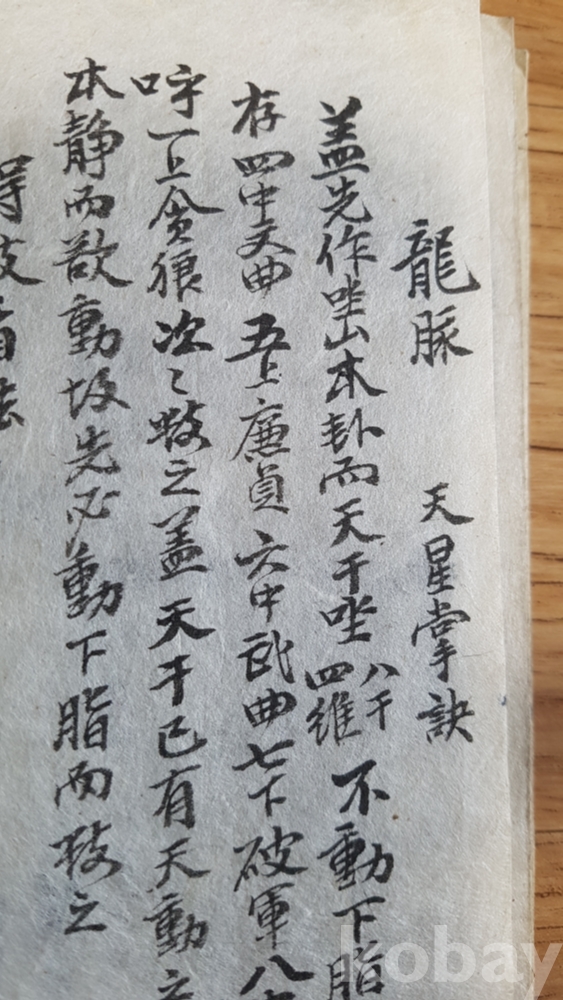 龍脉 天星掌訣
盖先作坐山本卦而天干坐八干四維不動下脂
存四中文曲五上廉貞六中武曲七下破軍八
呼一上貪狼次〻數之盖天干已有天動之
本静而欲動故先必動下脂而数之
kobay